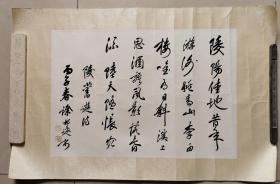 陵陽佳地昔年
游谢朓青山李白
楼唯有日斜溪上
思酒旗風影落春
流 陸天隨懷宛
陵舊遊诗
丙子春徐